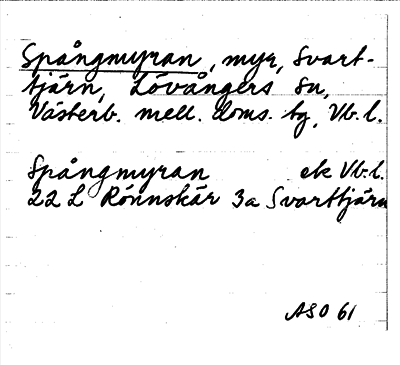 Spångmyran, myr, Svart-
tjärn, Lövångers sn,
Västerb. mell. doms. tg, Vb. l.
Spångmyran ek Vb. l.
22 L Rönnskär 3a Svarttjärn
ASO 61